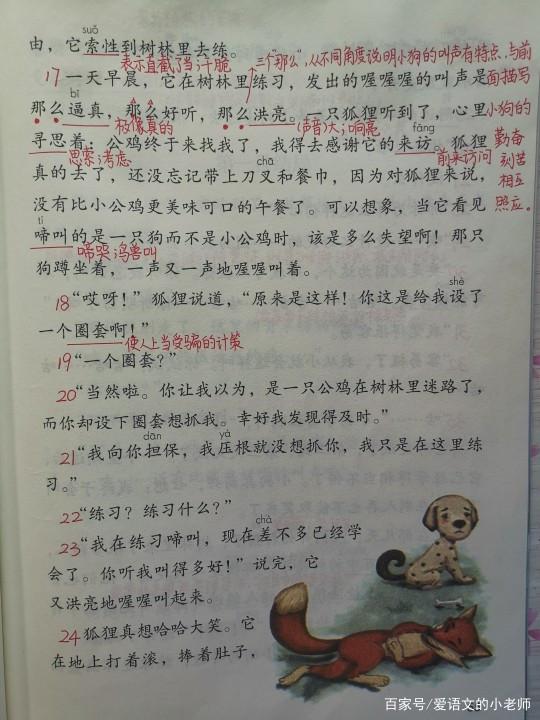 suǒ
由，它索性到树林里去练。
表示直截了当；干脆
三个“那么”，从不同角度说明小狗的叫声有特点，与前面描写小狗的勤奋刻苦相互照应。
17 一天早晨，它在树林里练习，发出的喔喔喔的叫声是
bī
那么逼真，那么好听，那么洪亮。一只狐狸听到了，心里
极像真的
(声音)大；响亮
fǎng
寻思着：公鸡终于来找我了，我得去感谢它的来访。狐狸
思索；考虑
前来访问
chā
真的去了，还没忘记带上刀叉和餐巾，因为对狐狸来说，
没有比小公鸡更美味可口的午餐了。可以想象，当它看见
tí
啼叫的是一只狗而不是小公鸡时，该是多么失望啊！那只
啼哭；鸟兽叫
狗蹲坐着，一声又一声地喔喔叫着。
shè
18 “哎呀！”狐狸说道，“原来是这样！你这是给我设了
一个圈套啊！”
使人上当受骗的计策
19 “一个圈套？”
20 “当然啦。你让我以为，是一只公鸡在树林里迷路了，
而你却设下圈套想抓我。幸好我发现得及时。”
dān yà
21 “我向你担保，我压根就没想抓你，我只是在这里练
习。”
22 “练习？练习什么？”
chà
23 “我在练习啼叫，现在差不多已经学
会了。你听我叫得多好！”说完，它
又洪亮地喔喔叫起来。
24 狐狸真想哈哈大笑。它
在地上打着滚，捧着肚子，
百家号/爱语文的小老师